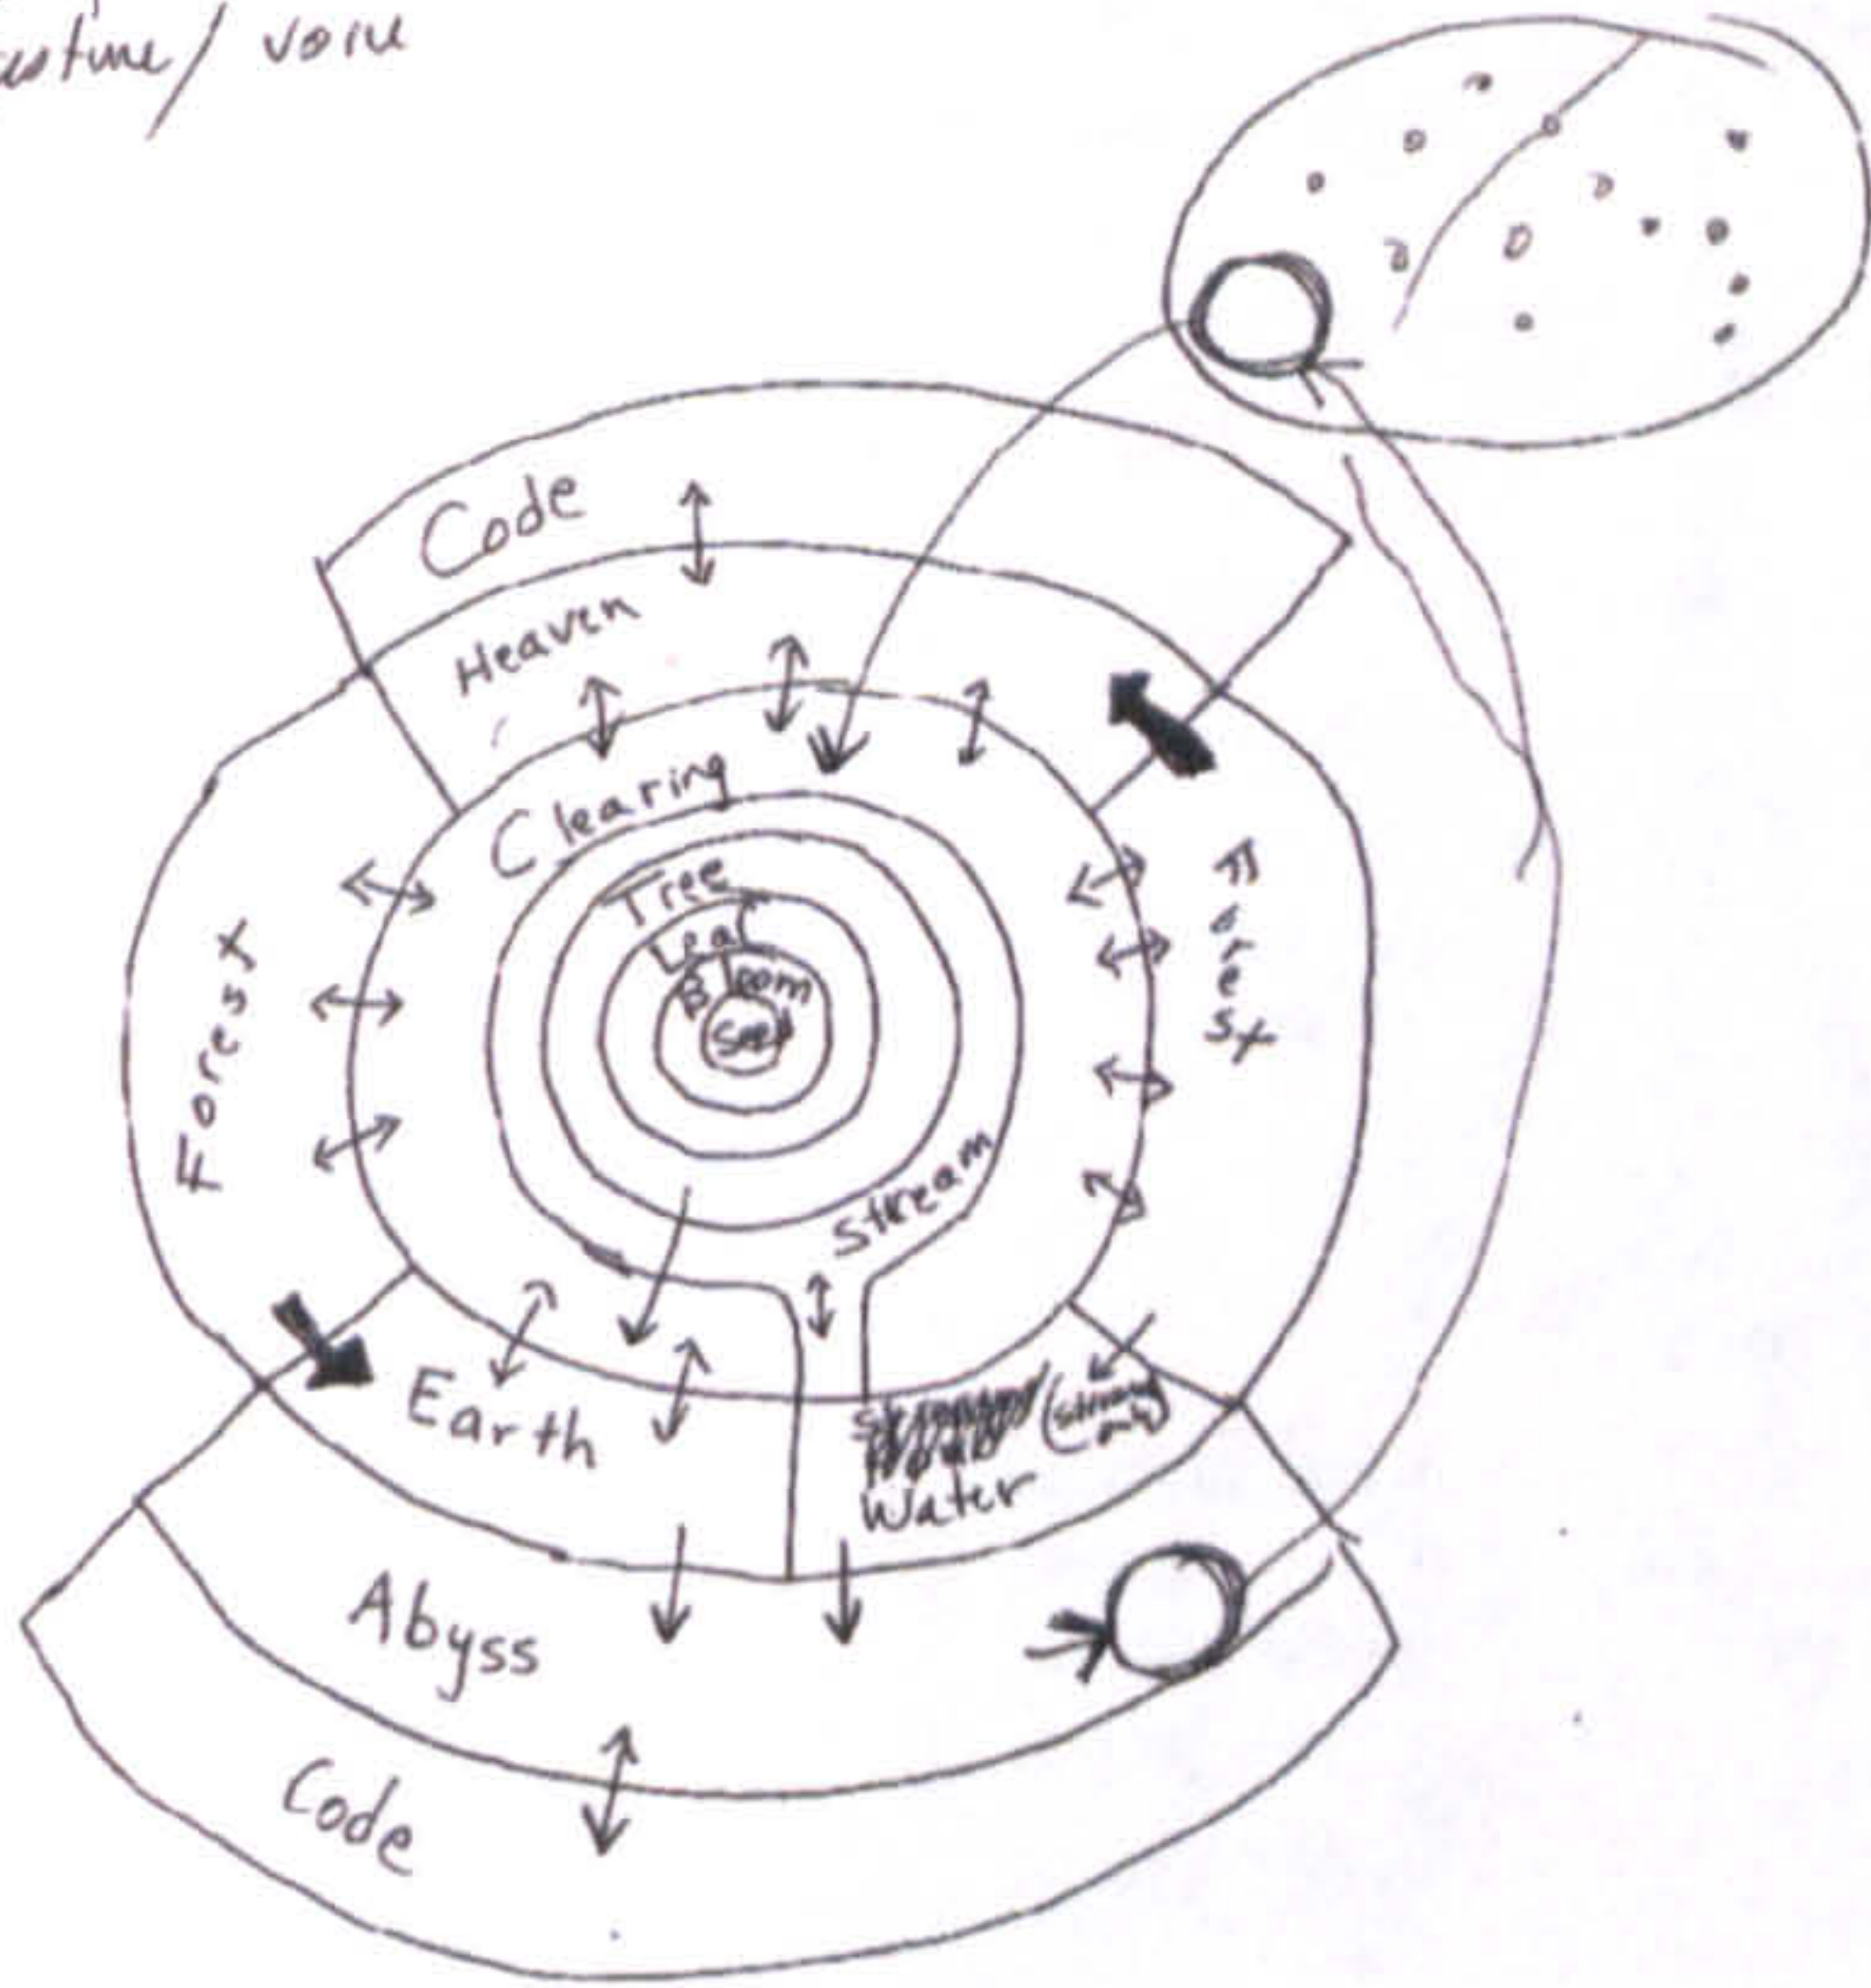 voice
Code
Heaven
Clearing
Tree
Leaf
Bloom
Seed
Forest
Forest
Stream
Earth
(stream only)
Water
Abyss
Code